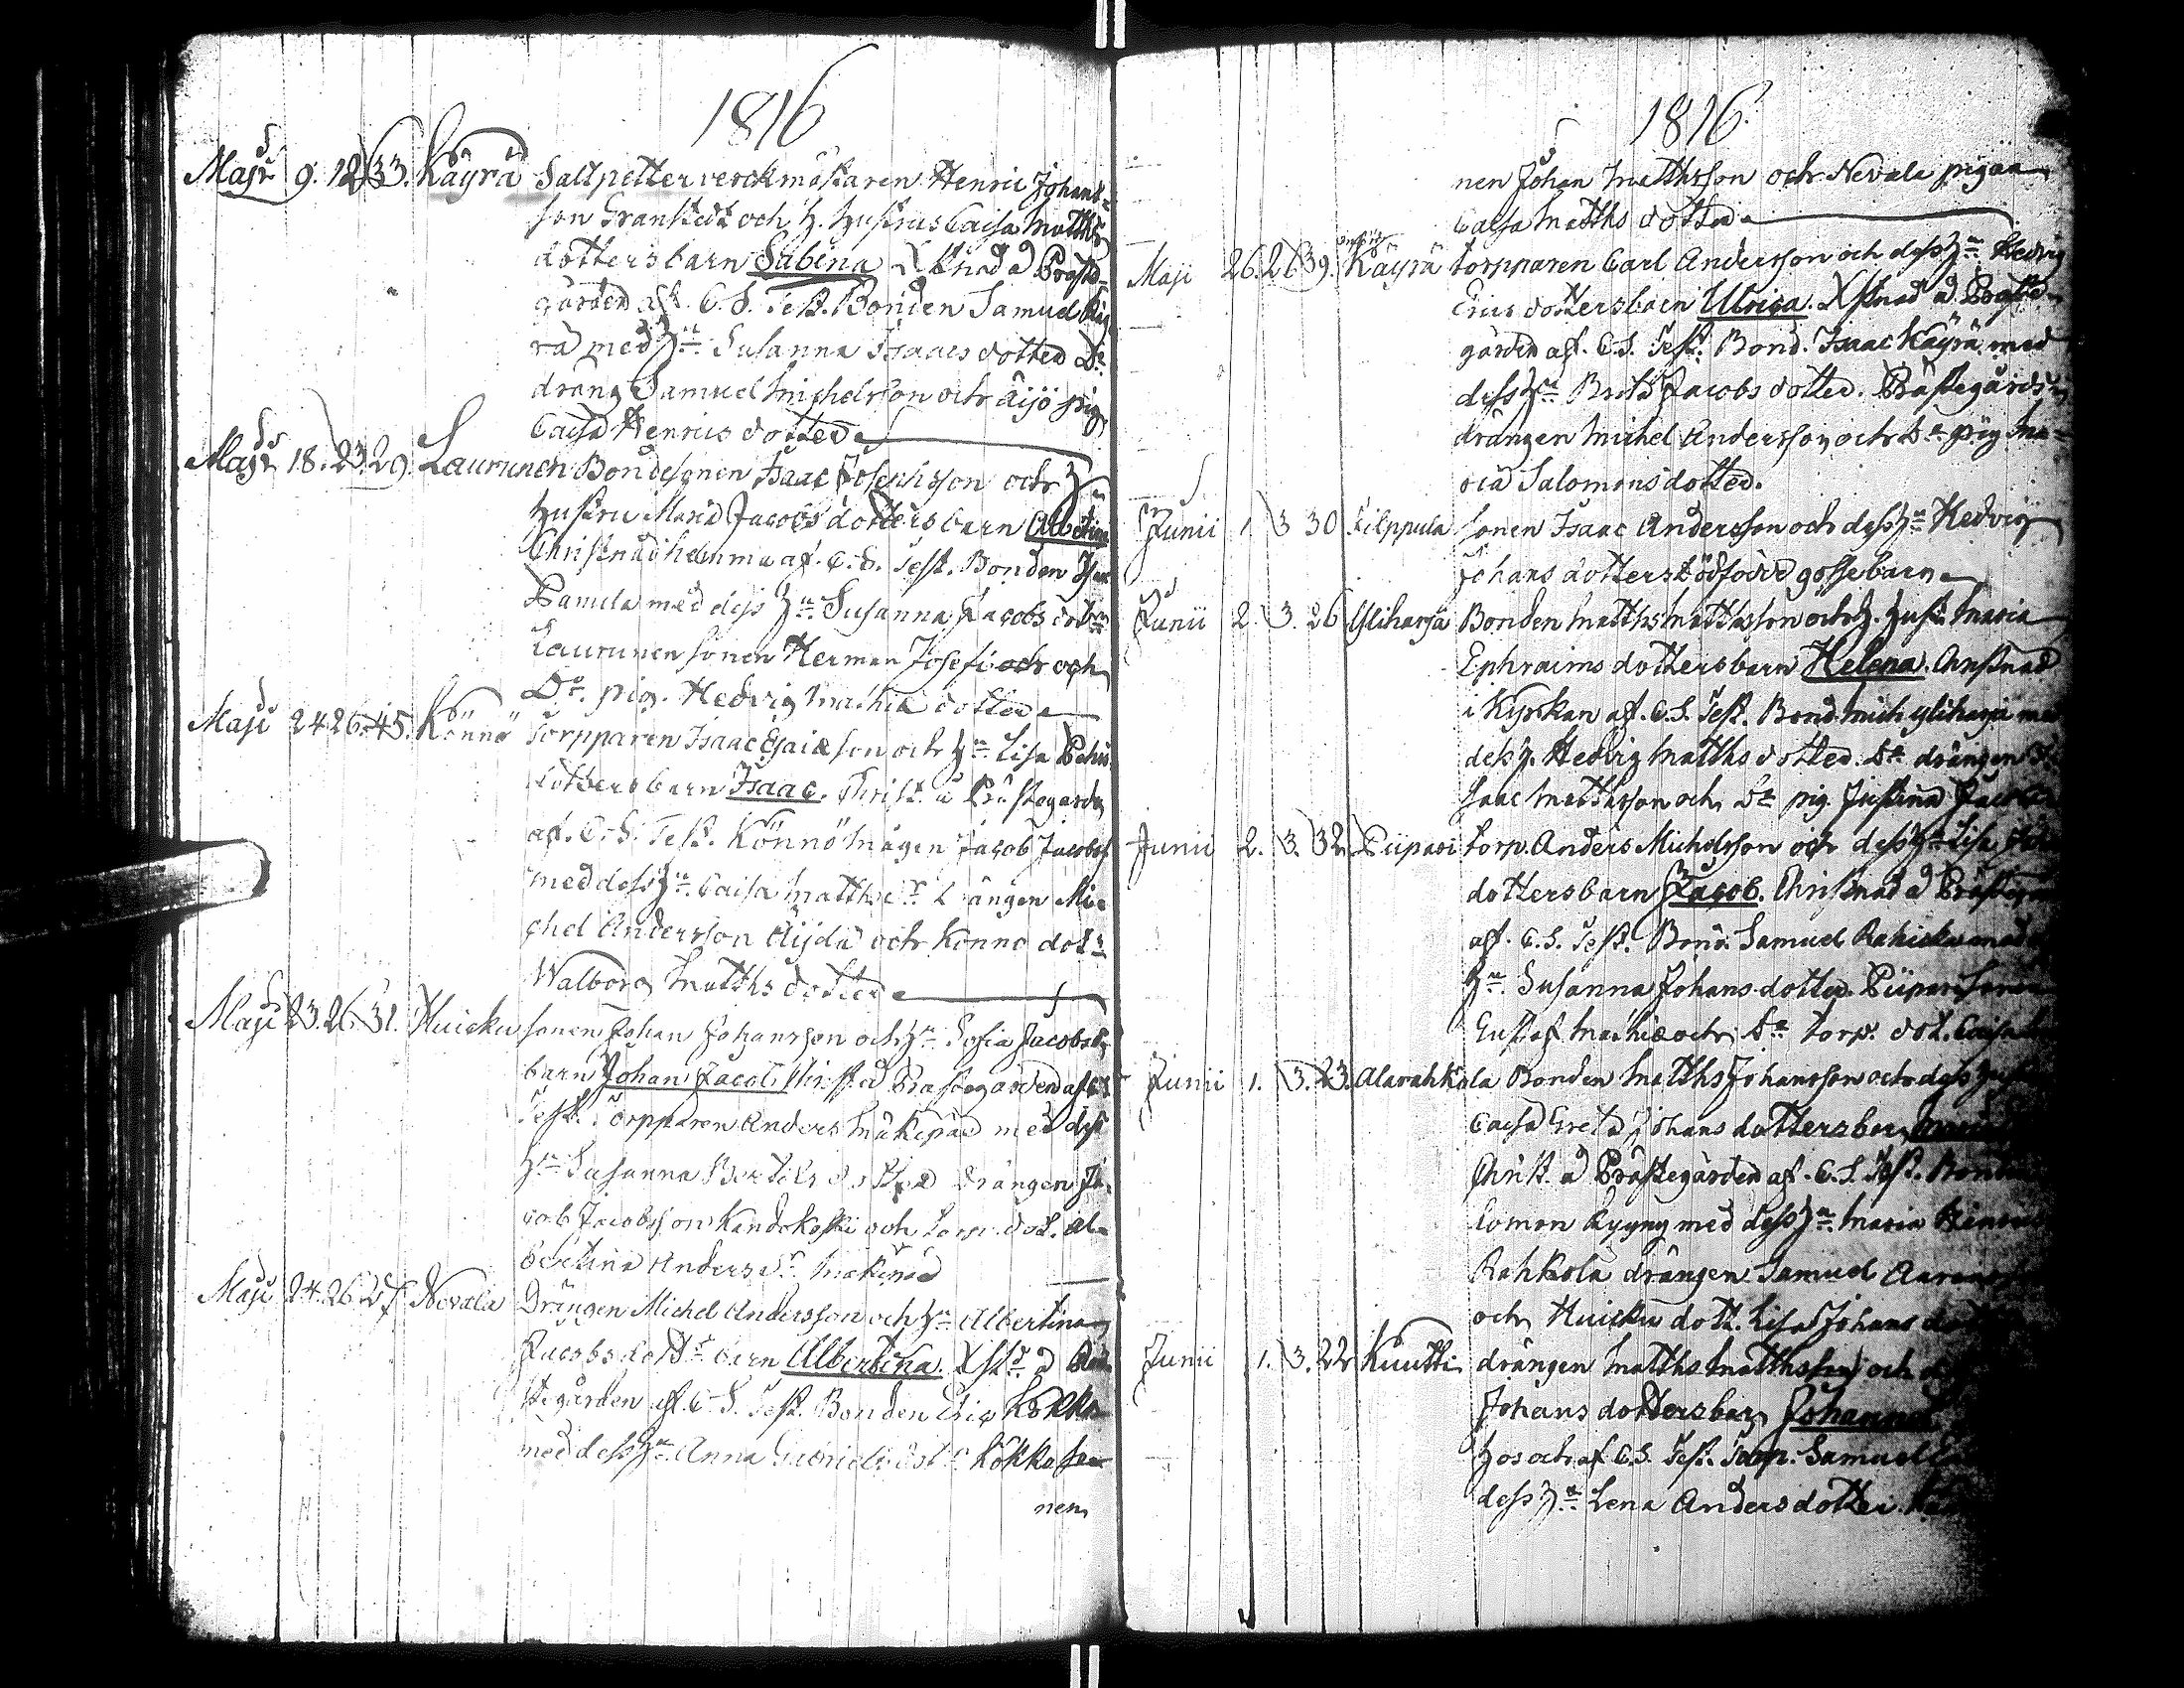 1816
Maji 9. 12. 33. Käyrä Saltpetterverckmästaren Henric Johans-
son Granstedt och h. hustrus Caisa Matths
dotters barn Sabina Xstnad å Präste-
gården af C. S. Test. Bonden Samuel Käy
rä med h:u Susanna Isaacs dotter D:o
dräng Samuel Michelsson och Äijö pig
Caisa Henrics dotter
Maji 18. 23. 29. Laurunen Bondesonen Isaac Josephsson och h
hustru Maria Jacobs dotters barn Albertina
Christnad hemma af C. S. Test. Bonden
Pamula med dess h:u Susanna Jacobs dotter
Laurunen sonen Herman Josefi och
D:o pig. Hedvig Mathiæ dotter
Maji 24 26. 45. Könnö Torpparen Isaac Esaiæson och h:u Lisa
dotters barn Isaac. Christ. å Prästegården
af C. S. Test. Könnö mågen Jacob Jacobss
med dess h:u Caisa Matths d:r Drängen Mi-
chel Andersson Äijälä och Könnö dot:r
Walborg Matths dotter
Maji 23. 26. 31. Huicku sonen Johan Johansson och h:u Sofia Jacobsd
barn Johan Jacob Christ. å Prästegården af C. S
Test. Torpparen Anders Mäkipää med dess
h:u Susanna Bertils dotter Drängen Ja-
cob Jacobsson Kandokoski och torp. dot. Al-
bertina Anders d:r Mäkipää
Maji 24. 26. 27 Nevala Drängen Michel Andersson och h:u Albertina
Jacobs dott:s barn Albertina. Xst:d å Prä
stegården af C. S. Test. Bonden Eric Kökkö
med dess h:u Anna Gabriels dot:r Kökkö so-
nen
1816.
nen Johan Matthsson och Nevala pigan
Caisa Matths dotter
Maji 26. 26. 39. Käyrä torpparen Carl Andersson och dess h:u Hedvig
Erics dotters barn Ulrica. Xstnad å Präste-
gården af C. S. Test. Bond. Isaac Käyrä med
dess h:u Brita Jacobs dotter. Prästegårds
drängen Michel Andersson och D:o pig Ma-
ria Salomons dotter.
Junii 1. 3 30 Filppula sonen Isaac Andersson och dess h:u Hedvig
Johans dotters dödfödd gosse barn
Junii 2. 3. 26 Yliharja Bonden Matths Mattsson och h. hust. Maria
Ephraims dotters barn Helena. Christnad
i Kyrckan af C. S. Test. Bond. Mich Yliharja med
dess h. Hedvig Matths dotter. D:o drängen I-
saac Mattsson och D:o pig. Justina Jacobs
Junii 2. 3. 32 Piipari torp. Anders Michelsson och dess h:u Lisa
dotters barn Jacob. Christnad å Prästeg
af C. S. Test. Bond. Samuel Rahicku med
h:u Susanna Johans dotter. Piipari sonen
Gustaf Mathiæ och D:o torp. dot. Caisa
Junii 1. 3. 23. Alarahkola Bonden Matths Johansson och dess hustru
Caisa Greta Johans dotters barn
Christ. å Prästegården af C. S. Test. Bonden
lomon Kyyny med dess h:u Maria Henrics
Rahkola drängen Samuel Aarons
och Huicku dott. Lisa Johans
Junii 1. 3. 22 Kuutti drängen Matths Matthsson och
Johans dotters barn Johanna
hos och af C. S. Test. Torp. Samuel
dess h:u Lena Anders dotter.